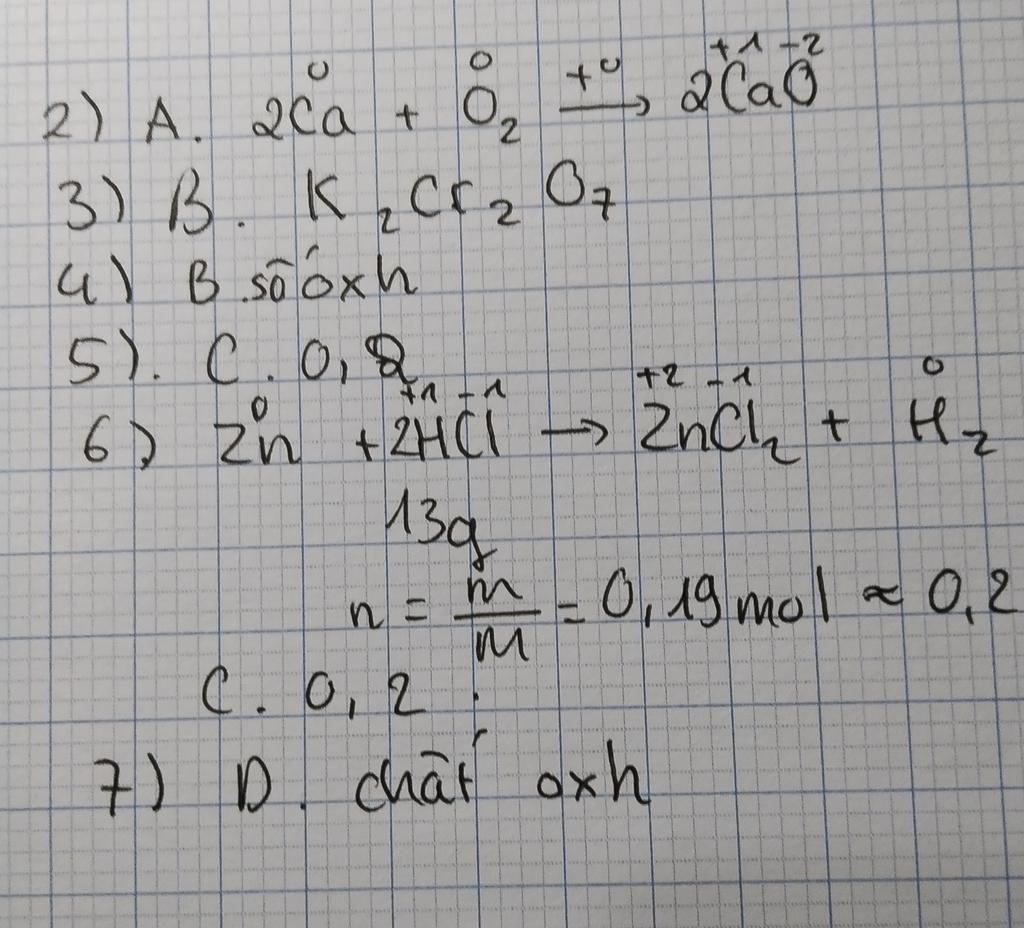 2) A. 2Ca⁰ + O₂⁰ —t⁰→ 2Ca⁺¹O⁻²
3) B. K₂Cr₂O₇
4) B số oxh
5). C. 0,2
6) Zn⁰ + 2H⁺¹Cl⁻¹ → Zn⁺²Cl₂⁻¹ + H₂⁰
13g
n = m/M = 0,19mol ≈ 0,2
C. 0,2
7) D. chất oxh